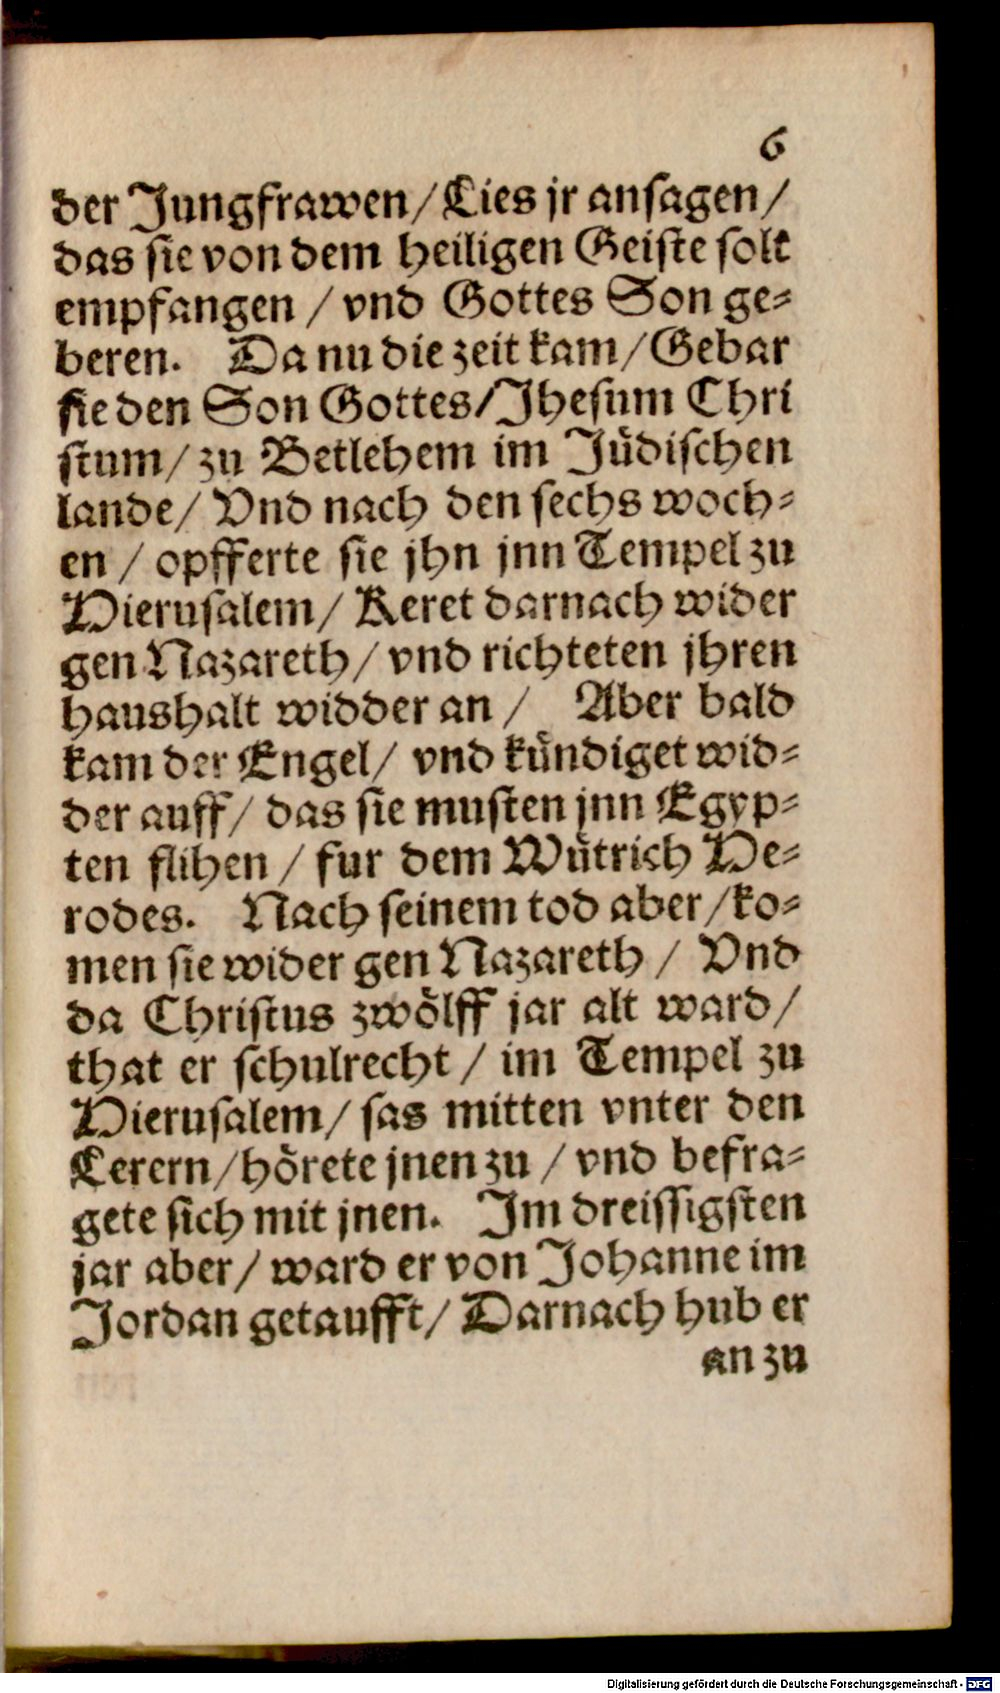 6
der Jungfrawen / Lies jr ansagen /
das sie von dem heiligen Geiste solt
empfangen / vnd Gottes Son ge⸗
beren. Da nu die zeit kam / Gebar
sie den Son Gottes / Jhesum Chri
stum / zu Betlehem im Jüdischen
lande / Vnd nach den sechs woch⸗
en / opfferte sie jhn jnn Tempel zu
Hierusalem / Keret darnach wider
gen Nazareth / vnd richteten jhren
haushalt widder an / Aber bald
kam der Engel / vnd kündiget wid⸗
der auff / das sie musten jnn Egyp⸗
ten flihen / fur dem Wütrich He⸗
rodes. Nach seinem tod aber / ko⸗
men sie wider gen Nazareth / Vnd
da Christus zwölff jar alt ward /
that er schulrecht / im Tempel zu
Hierusalem / sas mitten vnter den
Lerern / hörete jnen zu / vnd befra⸗
gete sich mit jnen. Im dreissigsten
jar aber / ward er von Johanne im
Jordan getaufft / Darnach hub er
an zu
Digitalisierung gefördert durch die Deutsche Forschungsgemeinschaft - DFG